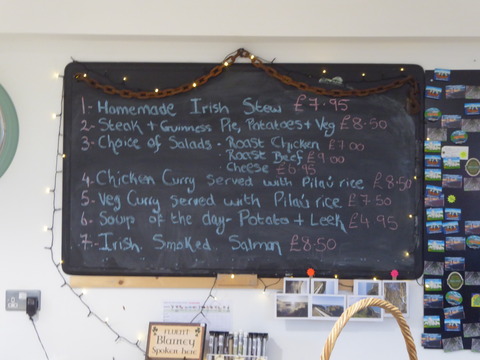 1- Homemade Irish Stew £7.95
2- Steak + Guinness Pie, Potatoes + Veg £8.50
3- Choice of Salads - Roast Chicken £7.00
Roast Beef £9.00
Cheese £6.95
4- Chicken Curry served with Pilau rice £8.50
5- Veg Curry served with Pilau rice £7.50
6- Soup of the day - Potato + Leek £4.95
7- Irish Smoked Salmon £8.50
FLUENT
Blarney
Spoken here